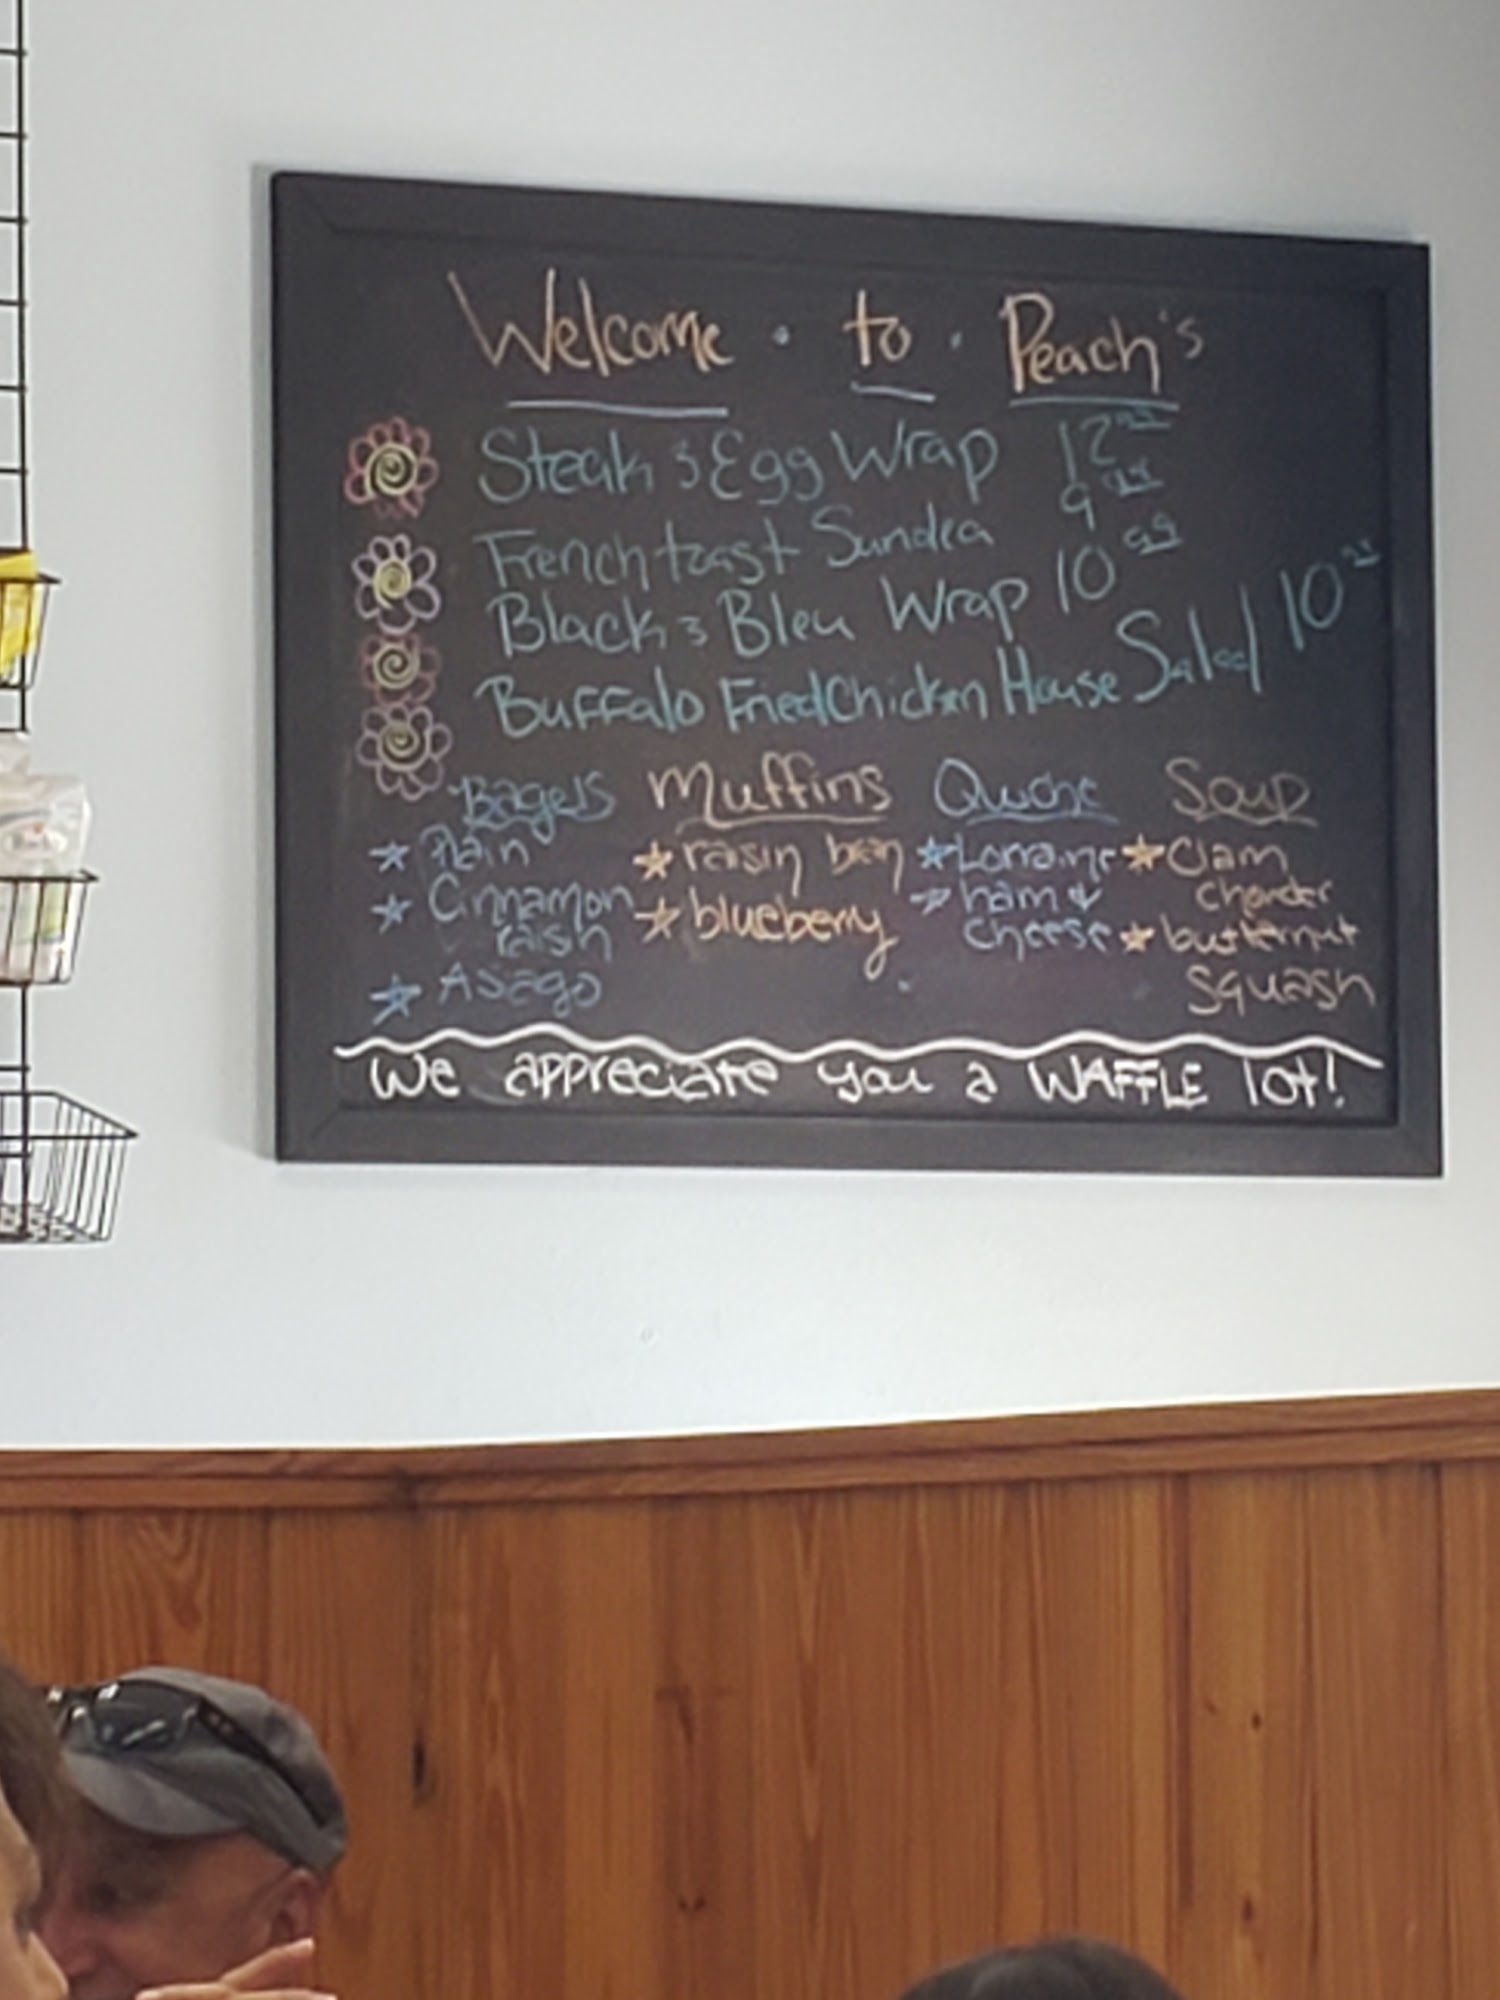 Welcome · to · Peach's
Steak & Egg Wrap 12
French toast Sundea 9
Black & Bleu Wrap 10 99
Buffalo Fried Chicken House Salad 10
Bagels Muffins Quiche Soup
Plain raisin bran Lorraine Clam
Cinnamon blueberry ham & chowder
raisin cheese butternut
Asiago Squash
We appreciate you a WAFFLE lot!